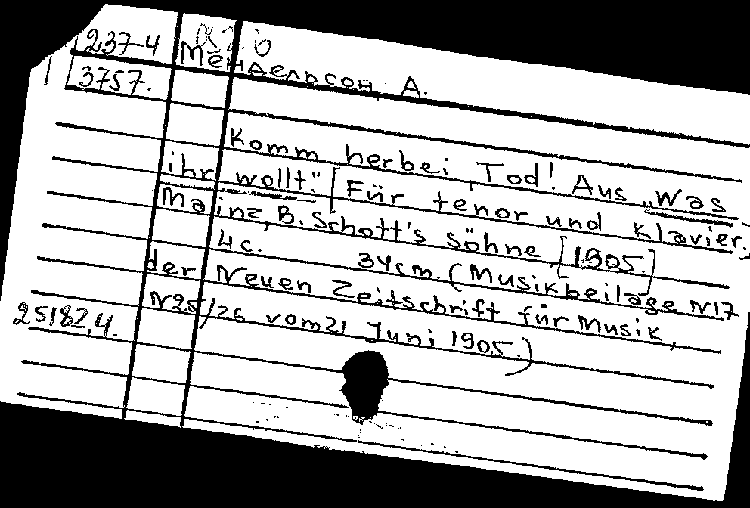 237-4 Мендельсон, А.
3757.
Komm herbei, Tod! Aus „Was
ihr wollt." [Für tenor und Klavier.]
Mainz, B. Schott's Söhne, [1905.]
4 c. 34 cm. (Musikbeilage N17
der Neuen Zeitschrift für Musik,
N25/26 vom 21 Juni 1905.)
25182,4.